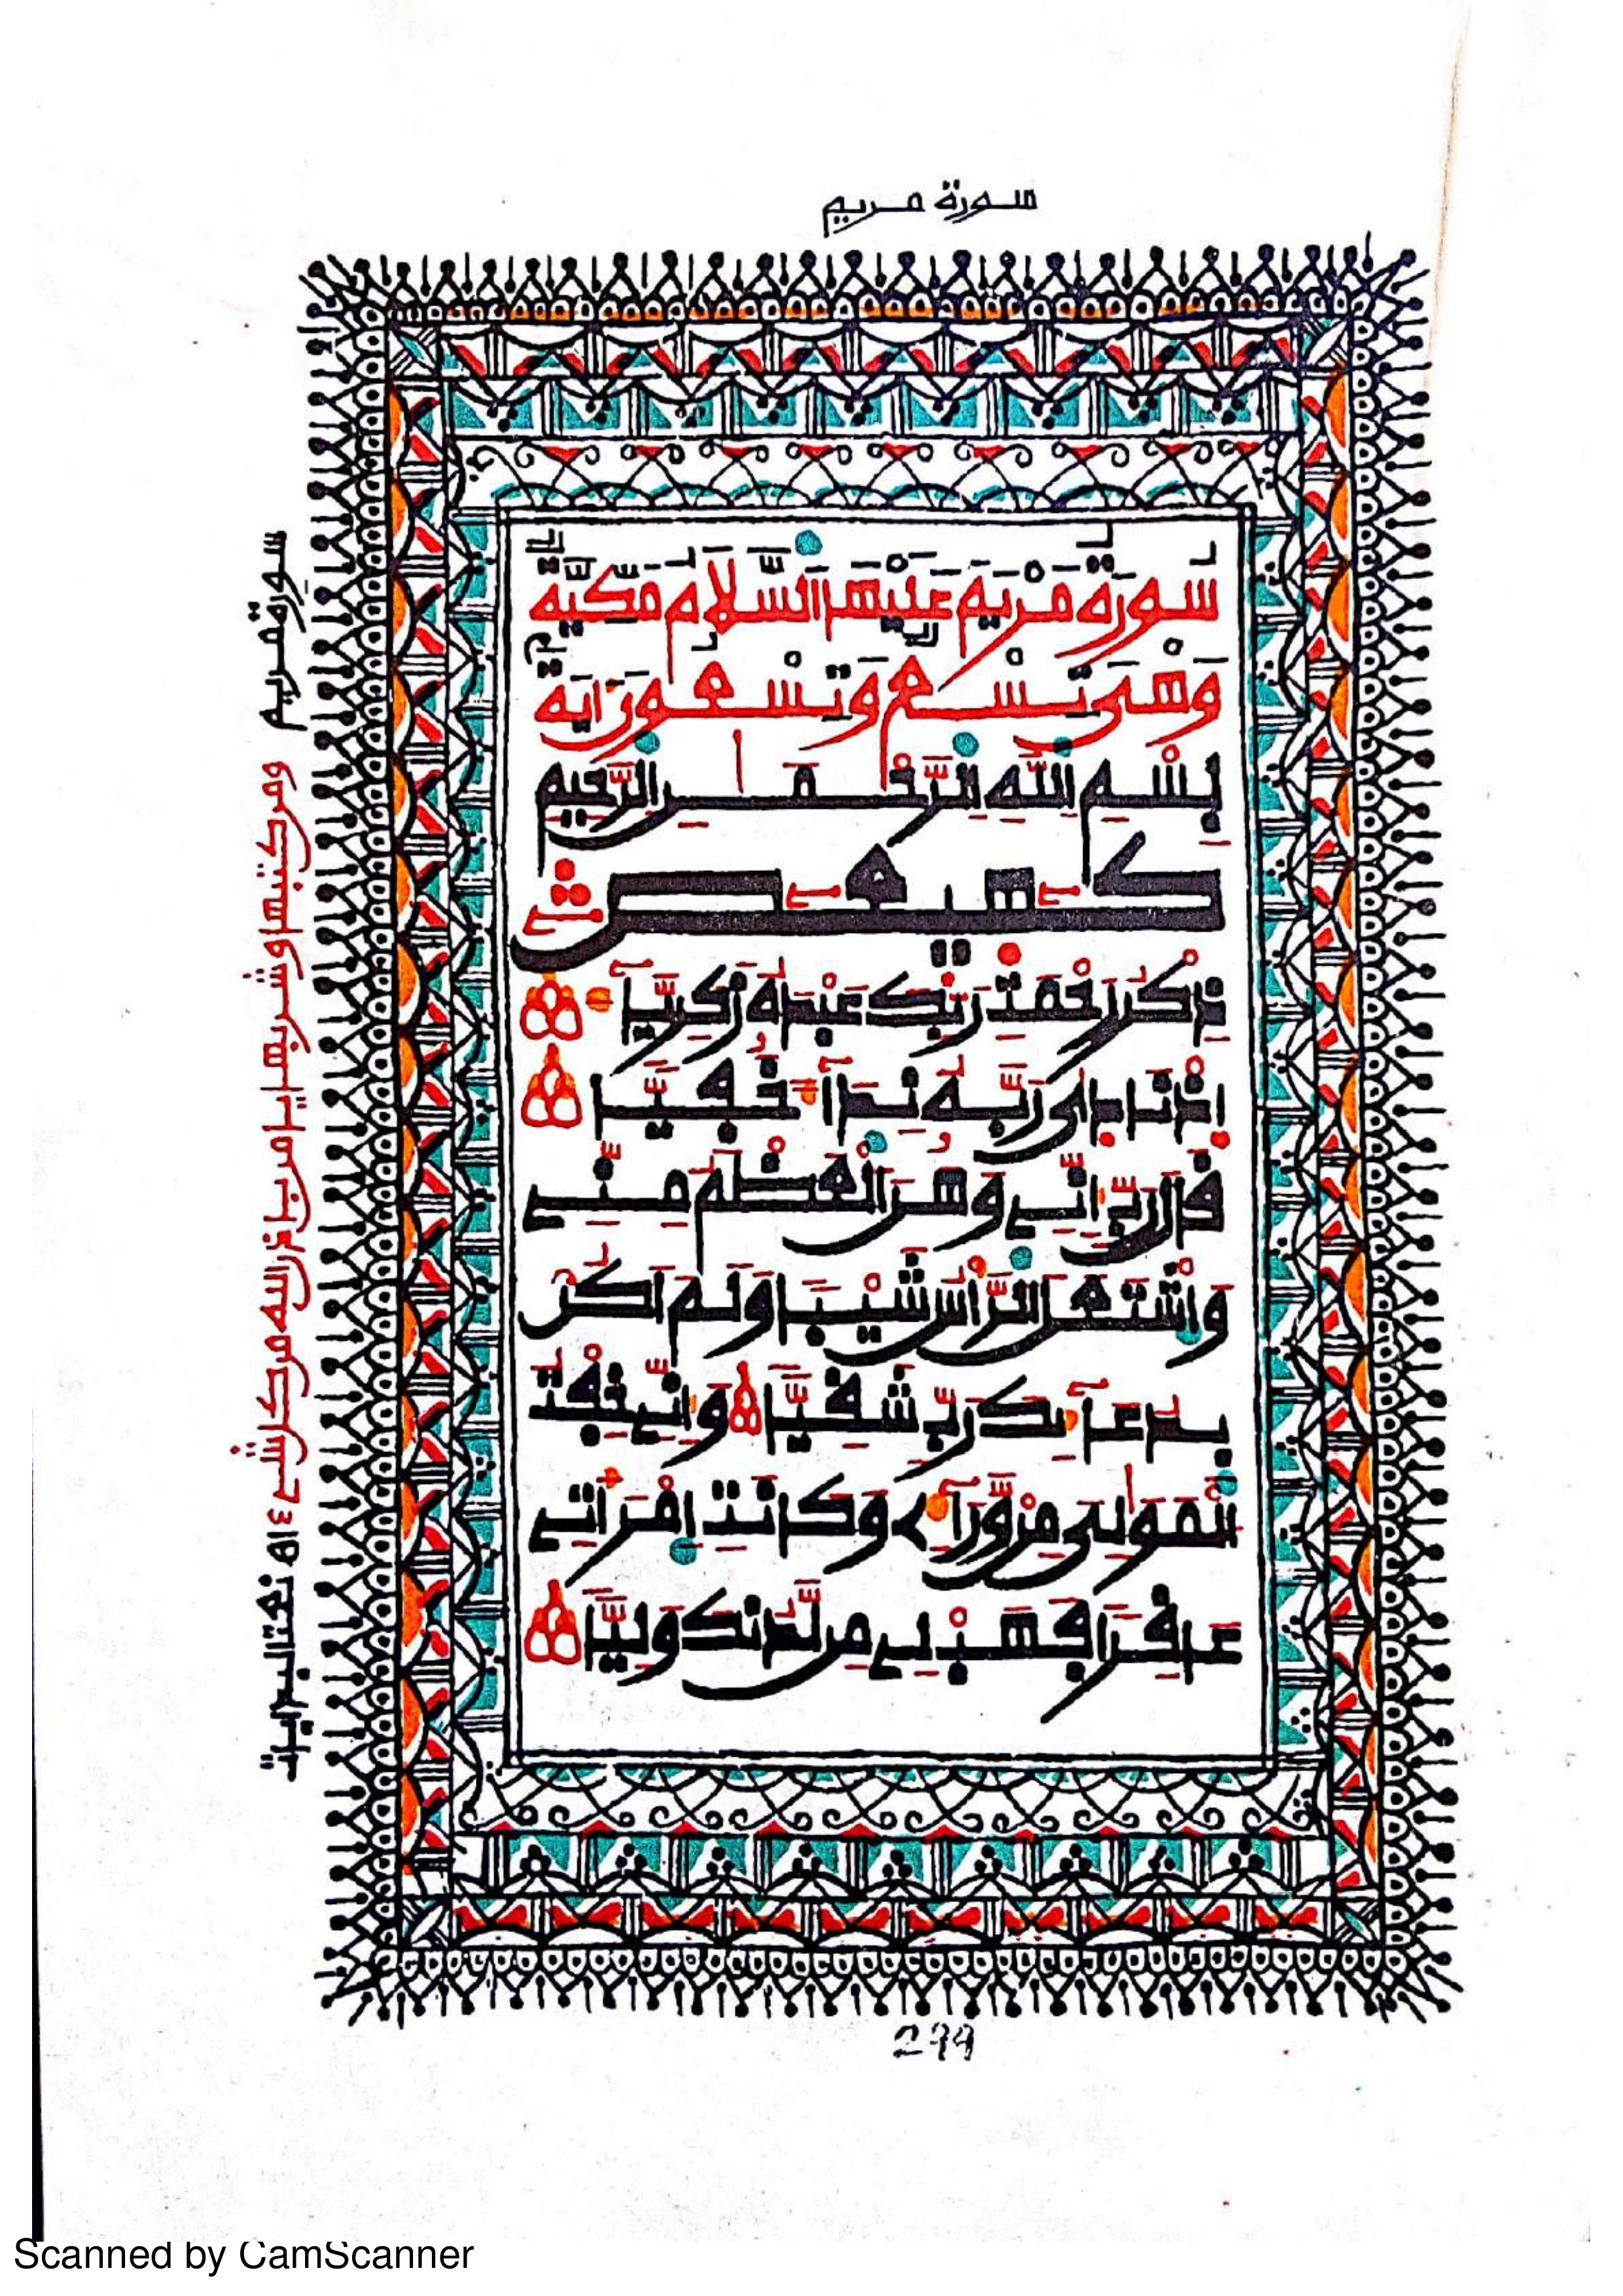 سورة مريم
سُورَةُ مَرْيَمَ عَلَيْهَا السَّلَامُ مَكِّيَّةٌ
وَهِىَ تِسْعٌ وَتِسْعُونَ ءَايَةً
بِسْمِ اللَّهِ الرَّحْمَٰنِ الرَّحِيمِ
كهيعص
ذِكْرُ رَحْمَتِ رَبِّكَ عَبْدَهُ زَكَرِيَّآءَ
اِذْ نَادَىٰ رَبَّهُ نِدَآءً خَفِيًّا
قَالَ رَبِّ إِنِّے وَهَنَ الْعَظْمُ مِنِّے
وَاشْتَعَلَ الرَّأْسُ شَيْبًا وَلَمَ اَكُنْ
بِدُعَآئِكَ رَبِّ شَقِيًّا وَإِنِّے خِفْتُ
الْمَوَٰلِىَ مِنْ وَّرَآءِے وَكَانَتِ اِمْرَأَتِے
عَاقِرًا فَهَبْ لِے مِن لَّدُنكَ وَلِيًّا
سورة مريم
ومن كتبها وشربها
نختالبدايت
299
Scanned by CamScanner